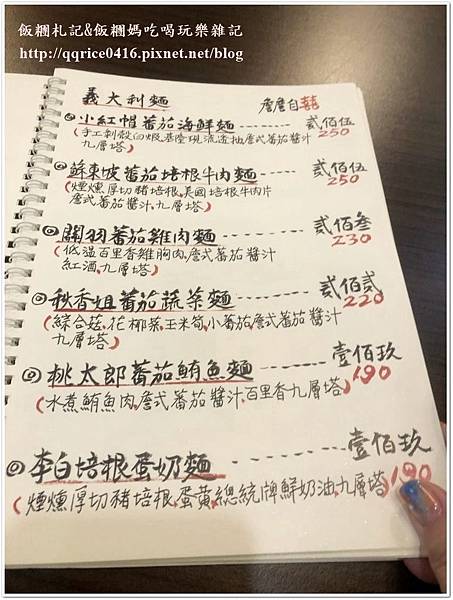 飯糰札記&飯糰媽吃喝玩樂雜記
http://qqrice0416.pixnet.net/blog
義大利麵 詹詹自囍
小紅帽蕃茄海鮮麵 貳佰伍
250
(手工剝殼白蝦.基隆現流透抽.詹式蕃茄醬汁
九層塔)
蘇東坡蕃茄培根牛肉麵 貳佰伍
250
(煙燻厚切豬培根.美國培根牛肉片
詹式蕃茄醬汁.九層塔)
關羽蕃茄雞肉麵 貳佰叁
230
(低溫百里香雞胸肉.詹式蕃茄醬汁
紅酒.九層塔)
秋香姐蕃茄蔬菜麵 貳佰貳
220
(綜合菇.花椰菜.玉米筍.小蕃茄.詹式蕃茄醬汁
九層塔)
桃太郎蕃茄鮪魚麵 壹佰玖
190
(水煮鮪魚肉.詹式蕃茄醬汁.百里香九層塔)
李白培根蛋奶麵 壹佰玖
190
(煙燻厚切豬培根.蛋黃.總統牌鮮奶油.九層塔)